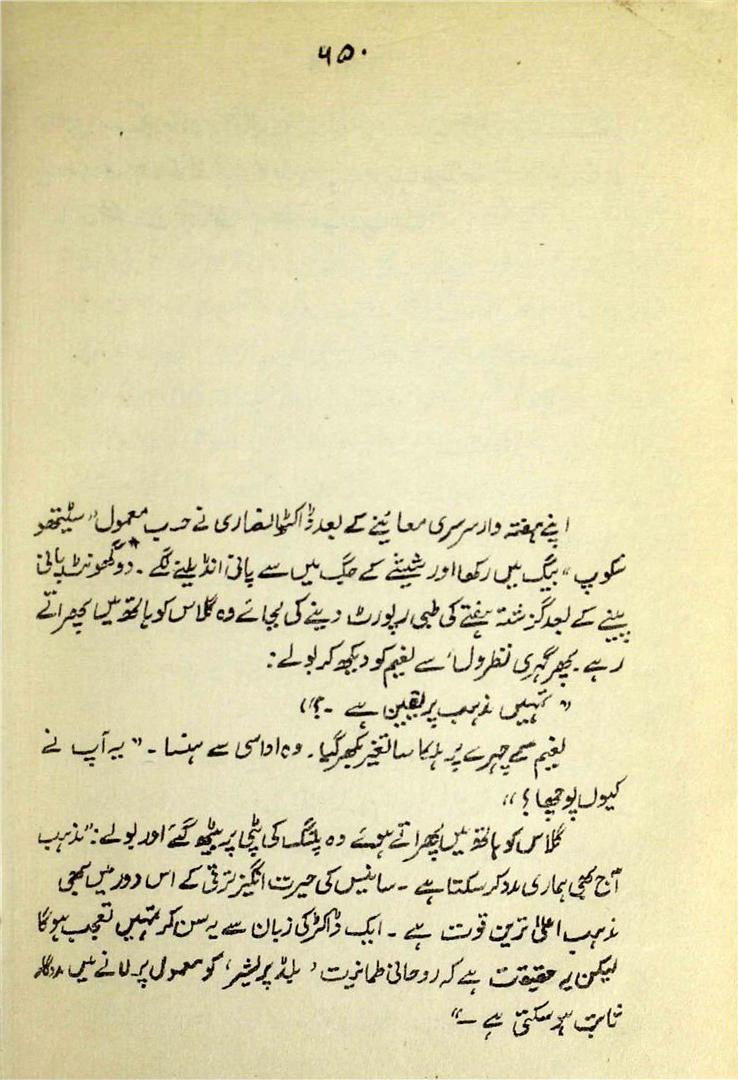 ۴۵۰
اپنے ہفتہ وار سرسری معائینے کے بعد ڈاکٹر انصاری نے حسب معمول "سٹیتھو
سکوپ" بیگ میں رکھا اور شیشے کے جگ میں سے پانی انڈیلنے لگے ۔ دو گھونٹ پانی
پینے کے بعد گزشتہ ہفتے کی طبی رپورٹ دینے کی بجائے وہ گلاس کو ہاتھ میں پھراتے
رہے ۔ پھر گہری نظروں سے نعیم کو دیکھ کر بولے :
" تمہیں مذہب پر یقین ہے ۔؟"
نعیم کے چہرے پر ہلکا سا تغیر بکھر گیا ۔ وہ اداسی سے ہنسا ۔ " یہ آپ نے
کیوں پوچھا ؟ "
گلاس کو ہاتھ میں پھراتے ہوئے وہ پلنگ کی پٹی پر بیٹھ گئے اور بولے : "مذہب
آج بھی ہماری مدد کر سکتا ہے ۔ سائنس کی حیرت انگیز ترقی کے اس دور میں بھی
مذہب اعلیٰ ترین قوت ہے ۔ ایک ڈاکٹر کی زبان سے یہ سن کر تمہیں تعجب ہو گا
لیکن یہ حقیقت ہے کہ روحانی طمانیت ' بلڈ پریشر ' کو معمول پر لانے میں مددگار
ثابت ہو سکتی ہے ۔"